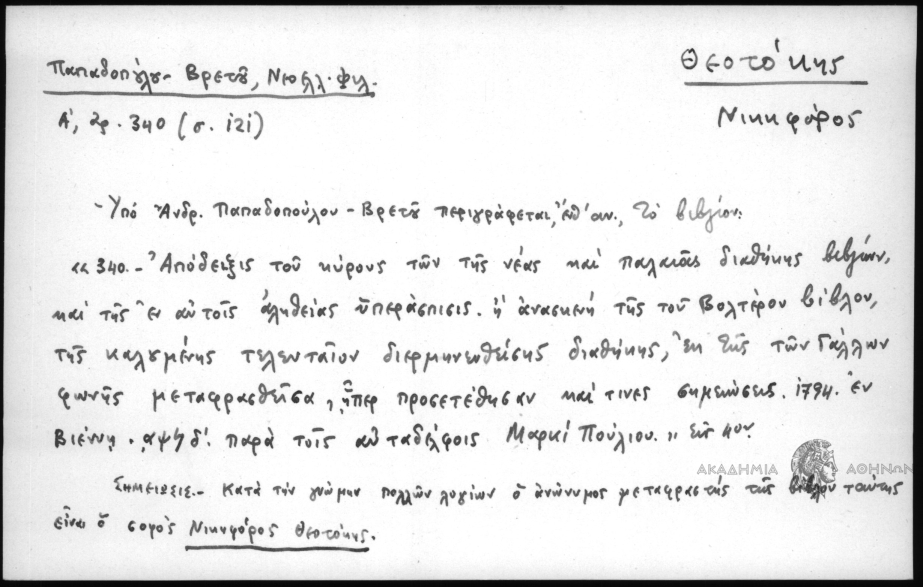 Θεοτόκης
Παπαδοπούλου-Βρετοῦ, Νεοελλ. Φιλ.
Α', ἀρ. 340 (σ. 121)
Νικηφόρος
Ὑπό Ἀνδρ. Παπαδοπούλου-Βρετοῦ περιγράφεται, τό βιβλίον:
«340.- Ἀπόδειξις τοῦ κύρους τῶν τῆς νέας καί παλαιᾶς διαθήκης βιβλίων,
καί τῆς ἐν αὐτοῖς ἀληθείας ὑπεράσπισις. ἤ ἀνασκευή τῆς τοῦ Βολτέρου βίβλου,
τῆς καλουμένης τελευταῖον διερμηνευθείσης διαθήκης, ἐκ τῆς τῶν Γάλλων
φωνῆς μεταφρασθεῖσα, ᾗπερ προσετέθησαν καί τινες σημειώσεις. 1794. ἐν
Βιέννῃ. αψϟδ'. παρά τοῖς αὐταδέλφοις Μαρκί Πούλιου.» εἰς 4ον.
ΑΚΑΔΗΜΙΑ ΑΘΗΝΩΝ
Σημείωσις.- Κατά τήν γνώμην πολλῶν λογίων ὁ ἀνώνυμος μεταφραστής τῆς βίβλου ταύτης
εἶναι ὁ σοφός Νικηφόρος Θεοτόκης.